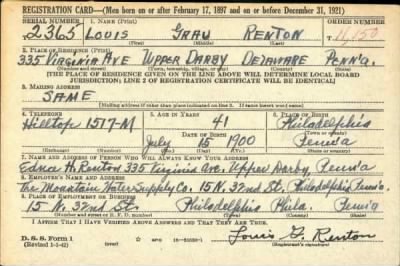 REGISTRATION CARD—(Men born on or after February 17, 1897 and on or before December 31, 1921)
SERIAL NUMBER 1. NAME (Print) ORDER NUMBER
2365 LOUIS GRAU RENTON T 11,150
(First) (Middle) (Last)
2. PLACE OF RESIDENCE (Print)
335 VIRGINIA AVE UPPER DARBY DELAWARE PENN'A.
(Number and street) (Town, township, village, or city) (County) (State)
[THE PLACE OF RESIDENCE GIVEN ON THE LINE ABOVE WILL DETERMINE LOCAL BOARD
JURISDICTION; LINE 2 OF REGISTRATION CERTIFICATE WILL BE IDENTICAL]
3. MAILING ADDRESS
SAME
[Mailing address if other than place indicated on line 2. If same insert word same]
4. TELEPHONE 5. AGE IN YEARS 6. PLACE OF BIRTH
Hilltop 1517-M 41 Philadelphia
DATE OF BIRTH (Town or county)
July 15 1900 Penn'a
(Exchange) (Number) (Mo.) (Day) (Yr.) (State or country)
7. NAME AND ADDRESS OF PERSON WHO WILL ALWAYS KNOW YOUR ADDRESS
Edna H. Renton 335 Virginia Ave, Upper Darby, Penn'a
8. EMPLOYER'S NAME AND ADDRESS
The Mountain Water Supply Co. 15 N. 32nd St, Philadelphia, Penn'a.
9. PLACE OF EMPLOYMENT OR BUSINESS
15 N. 32nd St. Philadelphia Phila. Penn'a
(Number and street or R. F. D. number) (Town) (County) (State)
I AFFIRM THAT I HAVE VERIFIED ABOVE ANSWERS AND THAT THEY ARE TRUE.
D. S. S. Form 1
(Revised 1-1-42) (over) GPO 16—21630-1
Louis G. Renton
(Registrant's signature)